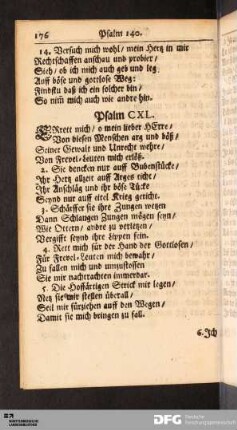 176 Psalm 140.
14. Versuch mich wohl/ mein Hertz in mir
Rechtschaffen anschau und probier/
Sieh/ ob ich mich auch geb und leg
Auff böse und gottlose Weg:
Findstu daß ich ein solcher bin/
So niṁ mich auch wie andre hin.
Psalm CXL.
ERrett mich/ o mein lieber HErre/
Von diesen Menschen arg und böß/
Seiner Gewalt und Unrecht wehre/
Von Frevel-Leuten mich erlöß.
2. Sie dencken nur auff Bubenstücke/
Ihr Hertz allzeit auff Arges richt/
Ihr Anschläg und ihr böse Tücke
Seynd nur auff eitel Krieg gericht.
3. Schärffer sie ihre Zungen wetzen
Dann Schlangen Zungen mögen seyn/
Wie Ottern/ andre zu verletzen/
Vergifft seynd ihre Lippen fein.
4. Rett mich für der Hand der Gottlosen/
Für Frevel-Leuten mich bewahr/
Zu fallen mich und umzustossen
Sie mir nachtrachten immerdar.
5. Die Hoffärtigen Strick mir legen/
Netz sie mir stellen überall/
Seil mir fürziehen auff den Wegen/
Damit sie mich bringen zu fall.
6. Ich
DFG Deutsche Forschungsgemeinschaft